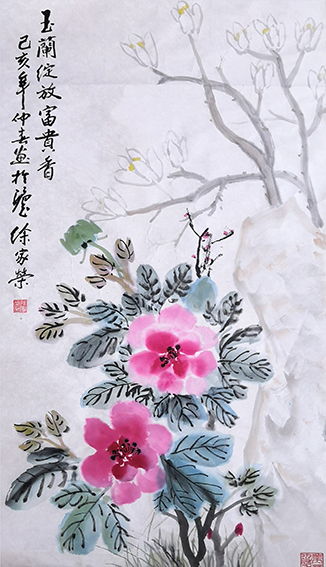 玉蘭綻放富貴香
己亥年仲春畫於滬 徐家榮